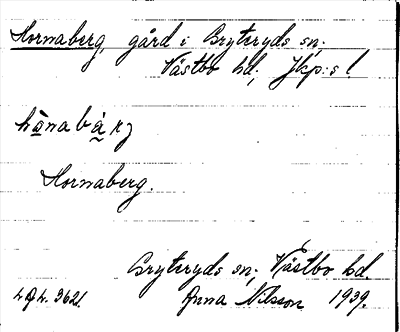 Hornaberg, gård i Gryteryds sn;
Västbo hd; Jkp:s l.
Hornaberg.
Gryteryds sn; Västbo hd.
Anna Nilsson 1939.